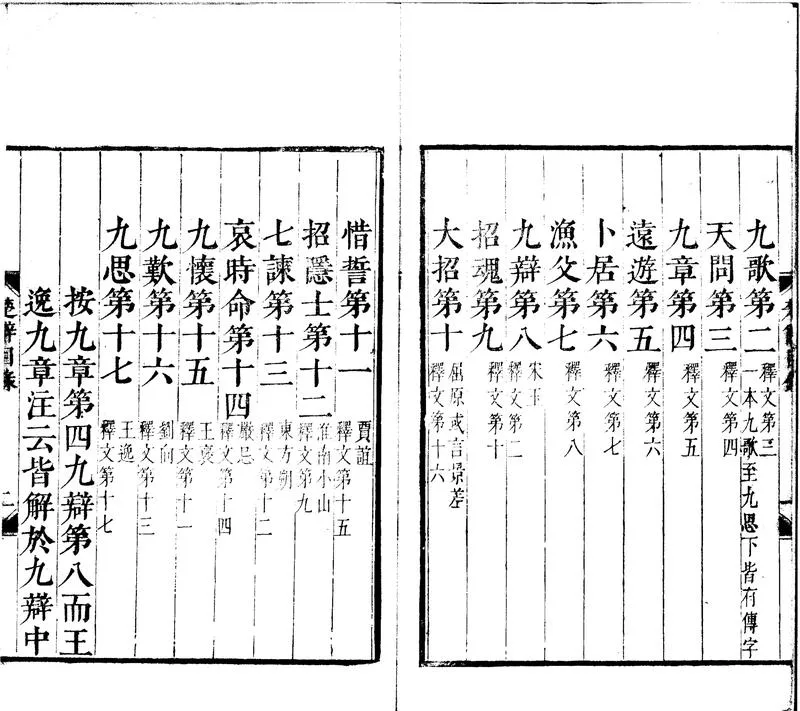 九歌第二 釋文第三 一本九歌至九思下皆有傳字
天問第三 釋文第四
九章第四 釋文第五
遠遊第五 釋文第六
卜居第六 釋文第七
漁父第七 釋文第八
九辯第八 宋玉 釋文第二
招魂第九 釋文第十
大招第十 屈原或言景差 釋文第十六
惜誓第十一 賈誼 釋文第十五
招隱士第十二 淮南小山 釋文第九
七諫第十三 東方朔 釋文第十二
哀時命第十四 嚴忌 釋文第十四
九懷第十五 王褒 釋文第十一
九歎第十六 劉向 釋文第十三
九思第十七 王逸 釋文第十七
按九章第四九辯第八而王
逸九章注云皆解於九辯中
楚辭目錄
二